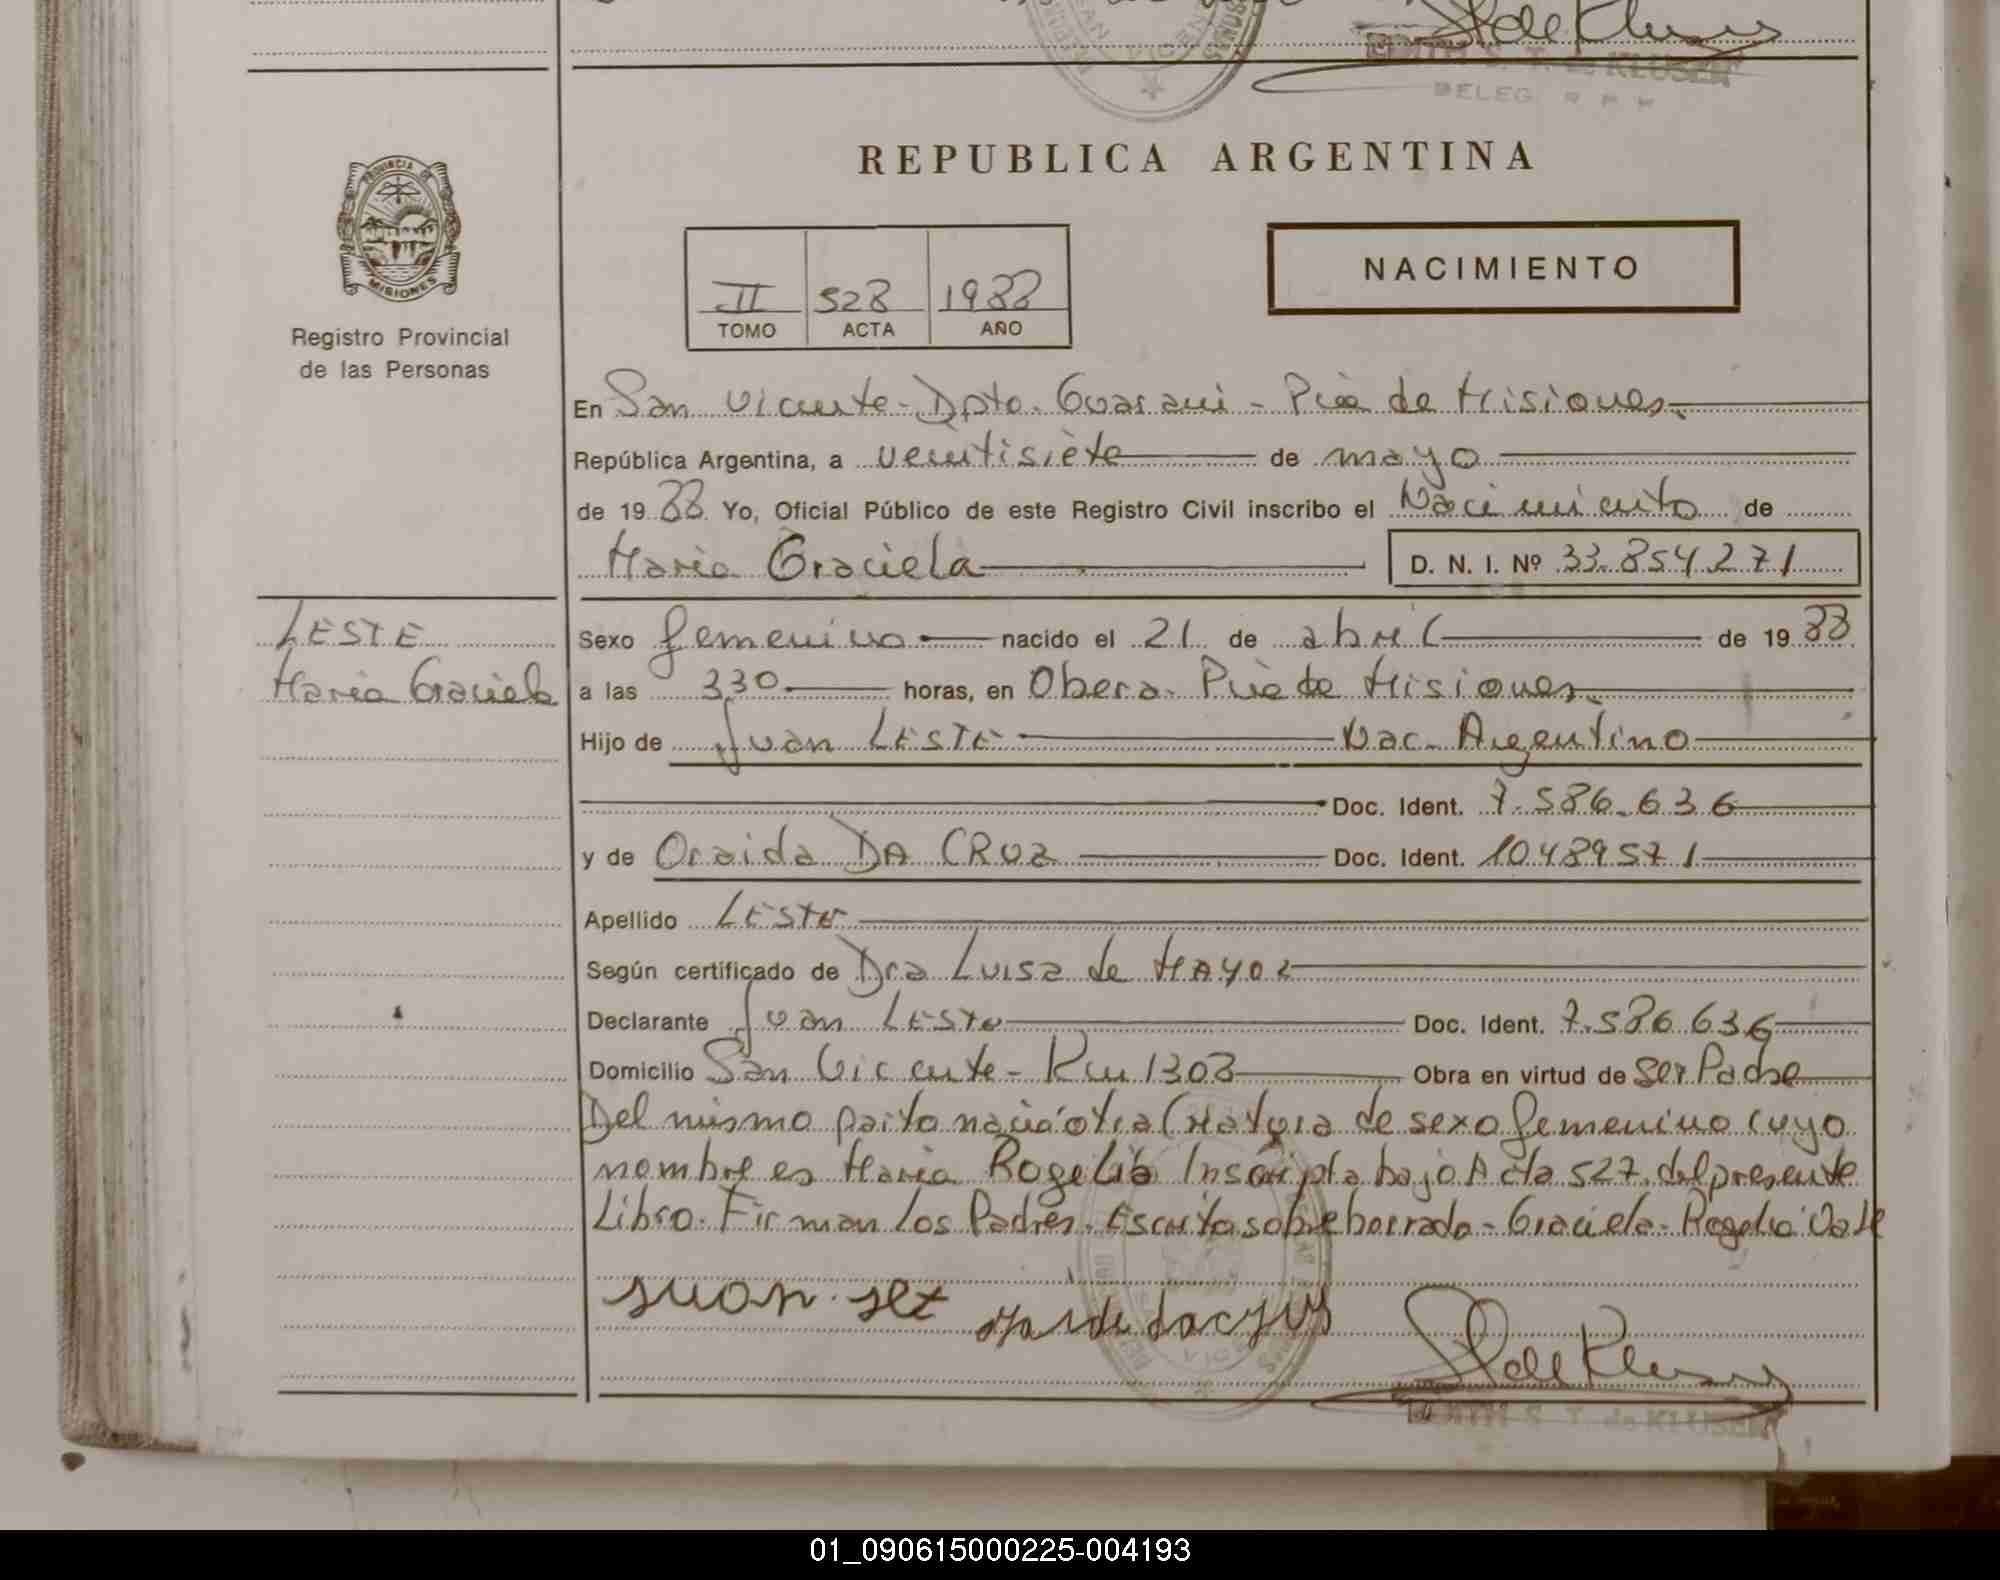 EDITH S. T. de KLUSEN
DELEG. R P P
REPUBLICA ARGENTINA
PROVINCIA DE
MISIONES
Registro Provincial
de las Personas
II 528 1988
TOMO ACTA AÑO
NACIMIENTO
En San Vicente - Dpto. Guarani - Pcia de Misiones.
República Argentina, a veintisiete de mayo
de 1988 Yo, Oficial Público de este Registro Civil inscribo el Nacimiento de
Maria Graciela D. N. I. Nº 33.854.271
LESTE
Maria Graciela
Sexo femenino nacido el 21 de abril de 1988
a las 330 horas, en Obera. Pcia de Misiones.
Hijo de Juan LESTE Nac. Argentino
Doc. Ident. 7.586.636
y de Oraida DA CRUZ Doc. Ident. 10489571
Apellido LESTE
Según certificado de Dra Luisa de MAYOR
Declarante Juan LESTE Doc. Ident. 7.586.636
Domicilio San Vicente - Km 1303 Obra en virtud de Ser Padre
Del mismo parto nació otra Criatura de sexo femenino cuyo
nombre es Maria Rogelia Inscripta bajo Acta 527 del presente
Libro. Firman los Padres. Escrito sobre borrado - Graciela - Rogelia Vale
EDITH S. T. de KLUSEN
01_090615000225-004193